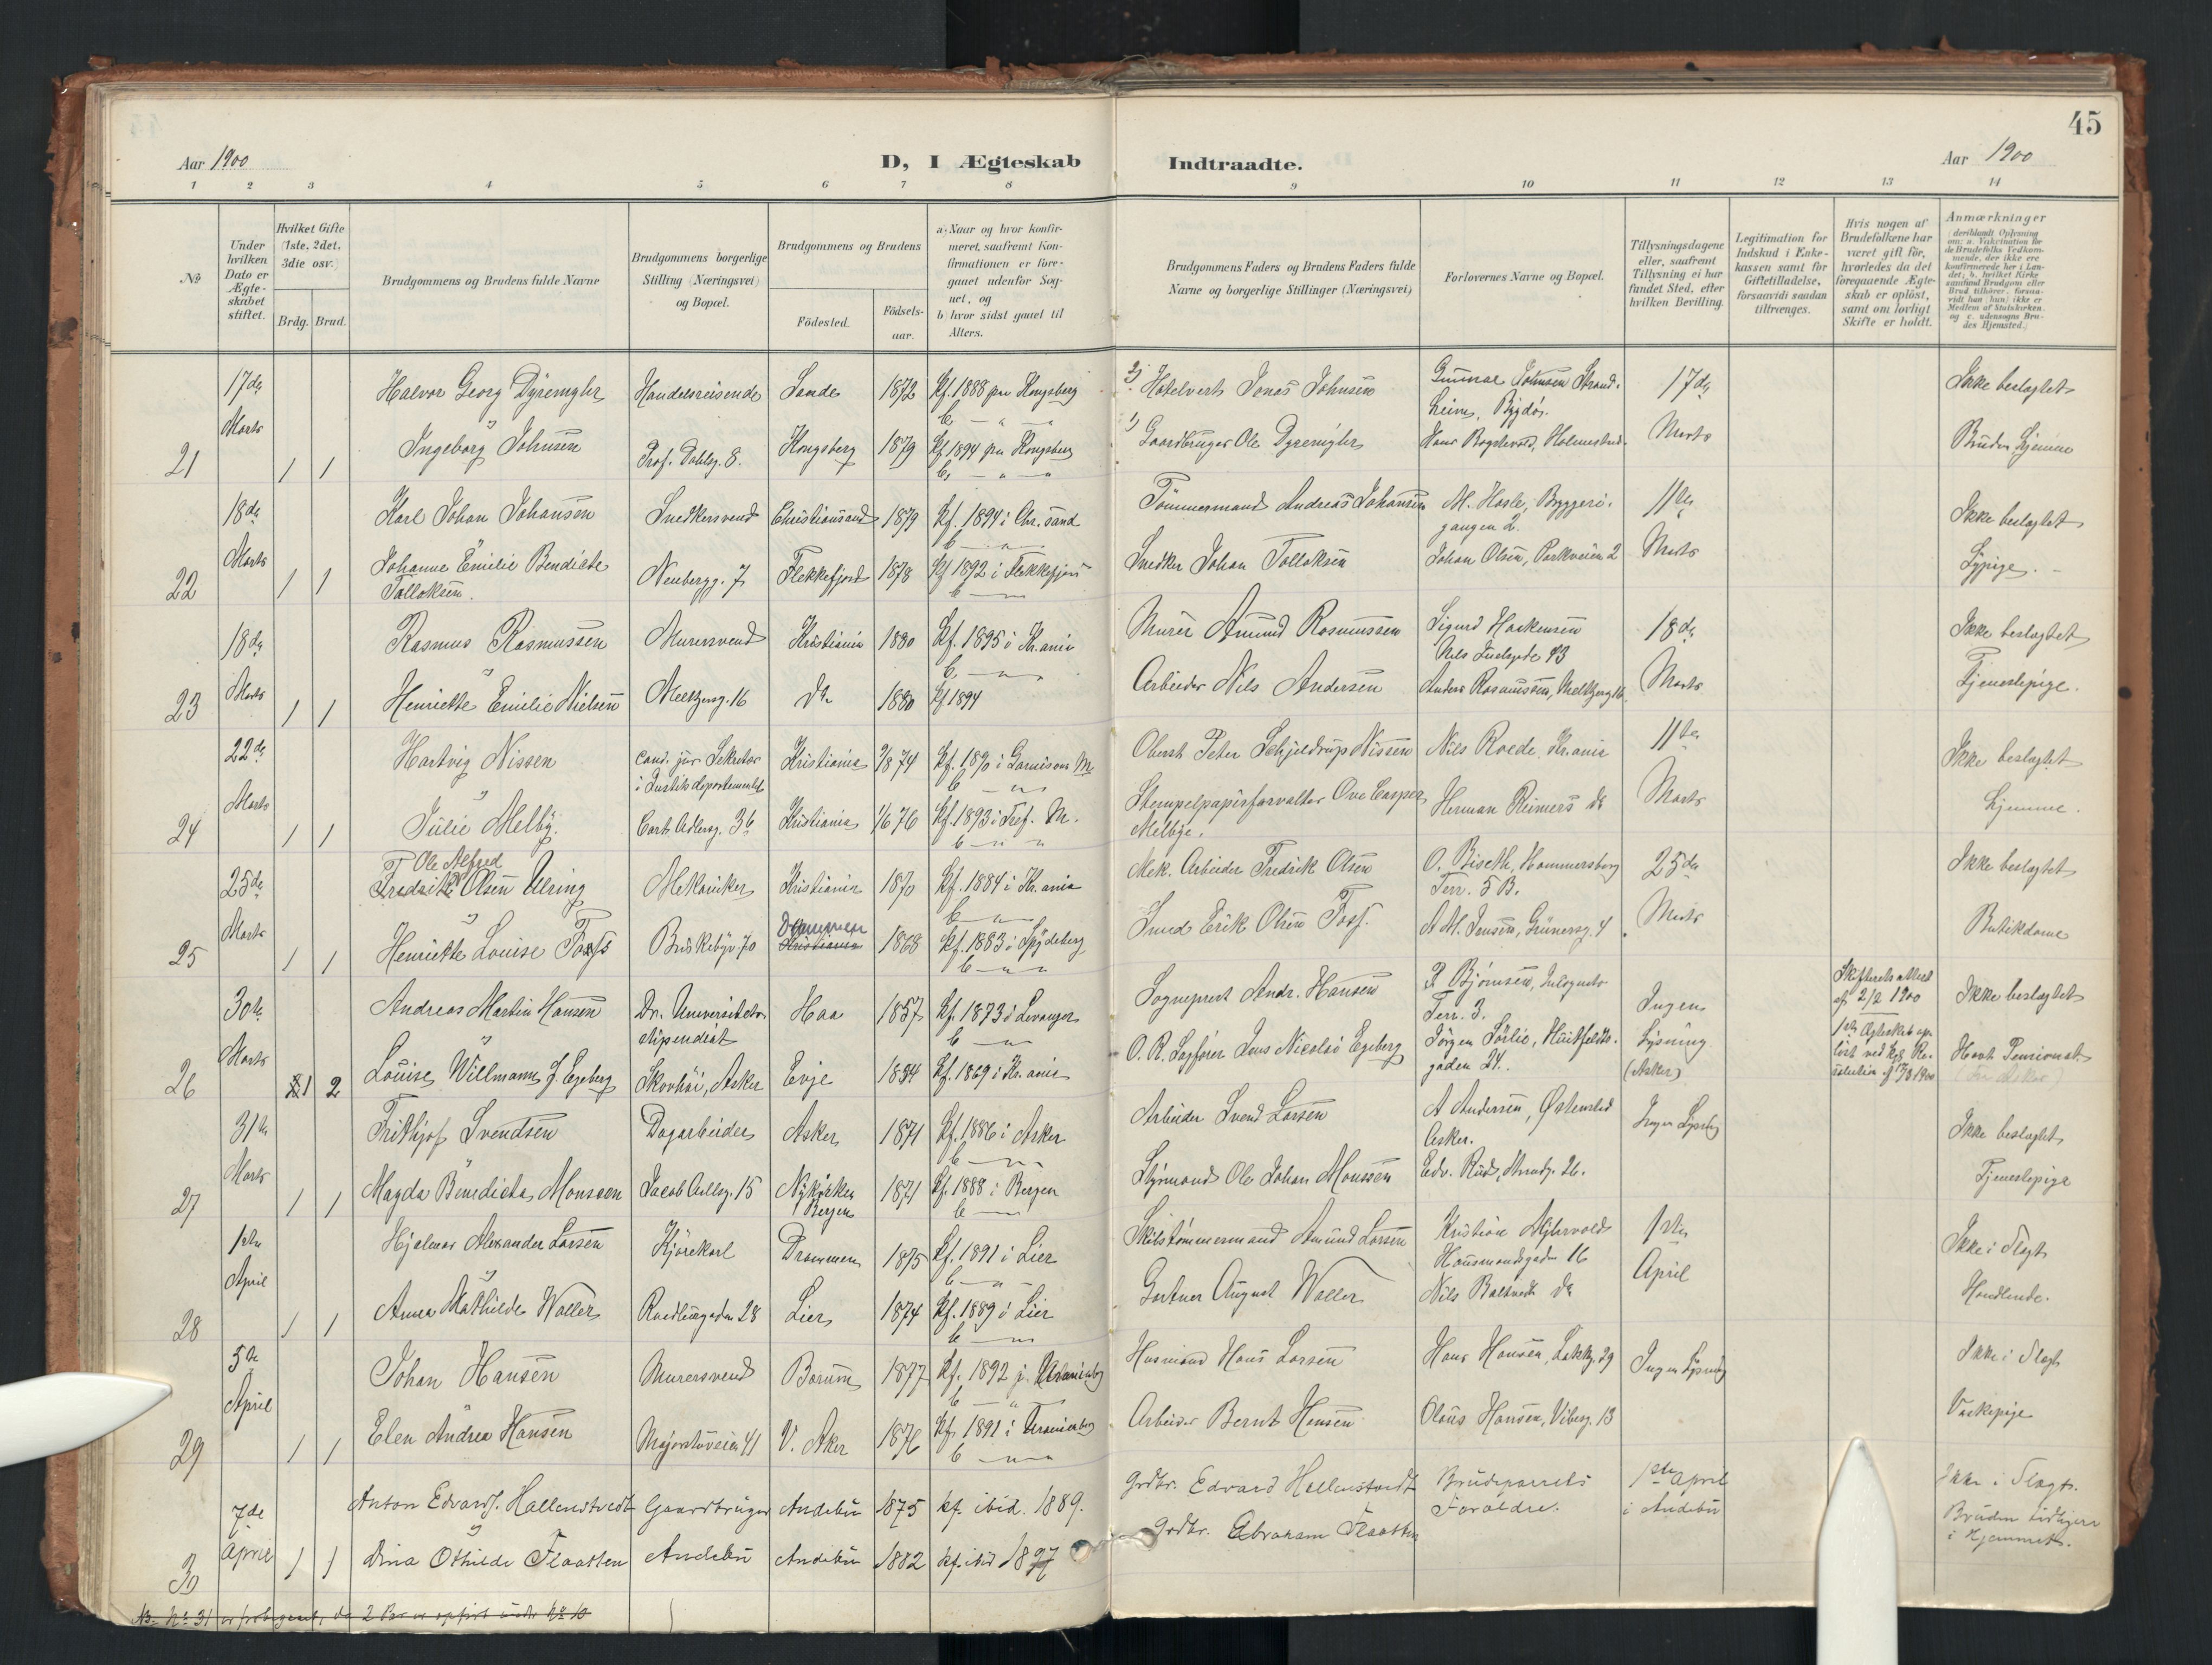 45
Aar 1900
D, I Ægteskab
Indtraadte.
Aar 1900
1 2 3 4 5 6 7 8 9 10 11 12 13 14
№
Under hvilken Dato er Ægteskabet stiftet.
Hvilket Gifte (1ste, 2det, 3die osv.)
Brdg. Brud.
Brudgommens og Brudens fulde Navne
Brudgommens borgerlige Stilling (Næringsvei) og Bopæl.
Brudgommens og Brudens
Födested.
Födsels-aar.
a) Naar og hvor konfirmeret, saafremt Konfirmationen er foregaaet udenfor Sognet, og
b) hvor sidst gaaet til Alters.
Brudgommens Faders og Brudens Faders fulde Navne og borgerlige Stillinger (Næringsvei)
Forlovernes Navne og Bopæl.
Tillysningsdagene eller, saafremt Tillysning ei har fundet Sted, efter hvilken Bevilling.
Legitimation for Indskud i Enkekassen samt for Giftetilladelse, forsaavidt saadan tiltrænges.
Hvis nogen af Brudefolkene har været gift før, hvorledes da det foregaaende Ægteskab er oplöst, samt om lovligt Skifte er holdt.
Anmærkninger (deriblandt Oplysning om: a. Vakcination for de Brudefolks Vedkommende, der ikke ere konfirmerede her i Landet; b. hvilket Kirkesamfund Brudgom eller Brud tilhører, forsaavidt han (hun) ikke er Medlem af Statskirken. og c. udensogns Brudes Hjemsted.)
21 17de Marts 1 1
Halvor Georg Dyremyhr Handelsreisende Sande 1872 Kf. 1888 paa Kongsberg
2) Hotelvert Jonas Johnsen Gunnar Johnsen Strandheim, Bygdø. 17de Marts Ikke beslægtet
Ingeborg Johnsen Prof. Dahlsg. 8. Kongsberg 1879 Kf. 1894 paa Kongsberg
1) Gaardbruger Ole Dyremyhr Hans Holmestrand. Bruden hjemme
22 18de Marts 1 1
Karl Johan Johansen Snedkersvend Christianssand 1879 Kf. 1894 i Chr.sand
Tömmermand Andreas Johansen M. Hasle, Byggerigangen 2. 11te Marts Ikke beslægtet
Johanne Emilie Bendicte Tolloksen. Neubergg. 7 Flekkefjord 1878 Kf 1892 i Flekkefjord
Snedker Johan Tolloksen Johan Olsen, Parkveien 2 Sypige.
23 18de Marts 1 1
Rasmus Rasmussen Murersvend Kristiania 1880 Kf. 1895 i Kr.ania
Murer Amund Rasmussen Sigurd Haakensen 18de Marts Ikke beslægtet
Henriette Emilie Nielsen Meltzersg. 16 do 1880 Kf 1894
Arbeider Nils Andersen Anders Rasmussen, Meltzersg 16. Tjenestepige.
24 22de Marts 1 1
Hartvig Nissen cand. jur Sekretær i Justitsdepartementet Kristiania 74 Kf. 1890 i Garnisons M
Oberst Peter Schjeldrup Nissen Nils Roede Kr.ania 11te Marts Ikke beslægtet
Julie Melby. Cort Adlersg. 3b Kristiania 76 Kf. 1893 i Tref. M.
Stempelpapirforvalter Ove Casper Melbye. Herman Reimers do hjemme.
25 25de Marts 1 1
Ole Alfred
Fredrik Olsen Ulring Mekaniker Kristiania 1870 Kf. 1884 i Kr.ania
Mek. Arbeider Fredrik Olsen O. Biseth, Hammersborg Terr. 5 B. 25de Marts Ikke beslægtet
Henriette Louise Foss Briskebyv. 70 Drammen Kristiania 1868 Kf. 1883 i Spydeberg
Smed Erik Olsen Foss. A. M. Jensen, Grünersg. 4 Butikdame
26 30te Marts 1 2
Andreas Martin Hansen Dr. Universitets-stipendiat Haa 1857 Kf. 1873 i Levanger
Sogneprest Andr. Hansen P. Bjørnsen, Terr. 3. Ingen Lysning (Asker) Skifteretsattest af 2/2 1900 Ikke beslægtet
Louise Willmann f. Egeberg Skovhøi, Asker Evje 1854 Kf. 1869 i Kr.ania
O. R. Sagfører Jens Nicolai Egeberg Jörgen Sörlie, Huitfeldts-gaden 24. 1ste Ægteskab oplöst ved Kgl. Resolution 1900 Havt Pensionat
27 31te Marts 1 1
Frithjof Svendsen Dagarbeider Asker 1871 Kf. 1886 i Asker
Arbeider Svend Larsen A Andersen, Østensted Asker. Ingen Lysning Ikke beslægtet
Magda Benedicta Monssen Jacob Aallsg. 15 Nykirken Bergen 1871 Kf. 1888 i Bergen
Styrmand Ole Johan Monssen Edv. Ruds, 26. Tjenestepige
28 1ste April 1 1
Hjalmar Alexander Larsen Kjörekarl Drammen 1875 Kf. 1891 i Lier
Skibstömmermand Amund Larsen Kristian Hausmandsgaden 16 1ste April Ikke i Slægt
Anna Mathilde Waller Lier 1874 Kf. 1889 i Lier
Gartner August Waller Nils do Handlende.
29 5te April 1 1
Johan Hansen Murersvend Bærum 1877 Kf. 1892 i Uranienborg
Husmand Hans Larsen Hans Hansen, 29 Ingen Lysning Ikke i Slægt
Elen Andrea Hansen Majorstuveien 41 V. Aker 1876 Kf. 1891 i Uranienborg
Arbeider Bernt Hansen Olaus Hansen, Vibesg. 13 Vaskepige
30 7de April 1 1
Anton Edvard J. Hallenstvedt Gaardbruger Andebu 1875 kf. ibid. 1889.
Grdbr. Edvard Hallenstvedt Brudeparrets Forældre. 1ste April i Andebu Ikke i Slægt.
Dina Othilde Flaatten Andebu Andebu 1882 kf. ibid 1897
Grdbr. Abraham Flaatten Bruden tidligere i Hjemmet.
NB. No 31 er forbigaaet, da 2 Par er opfört under No 10